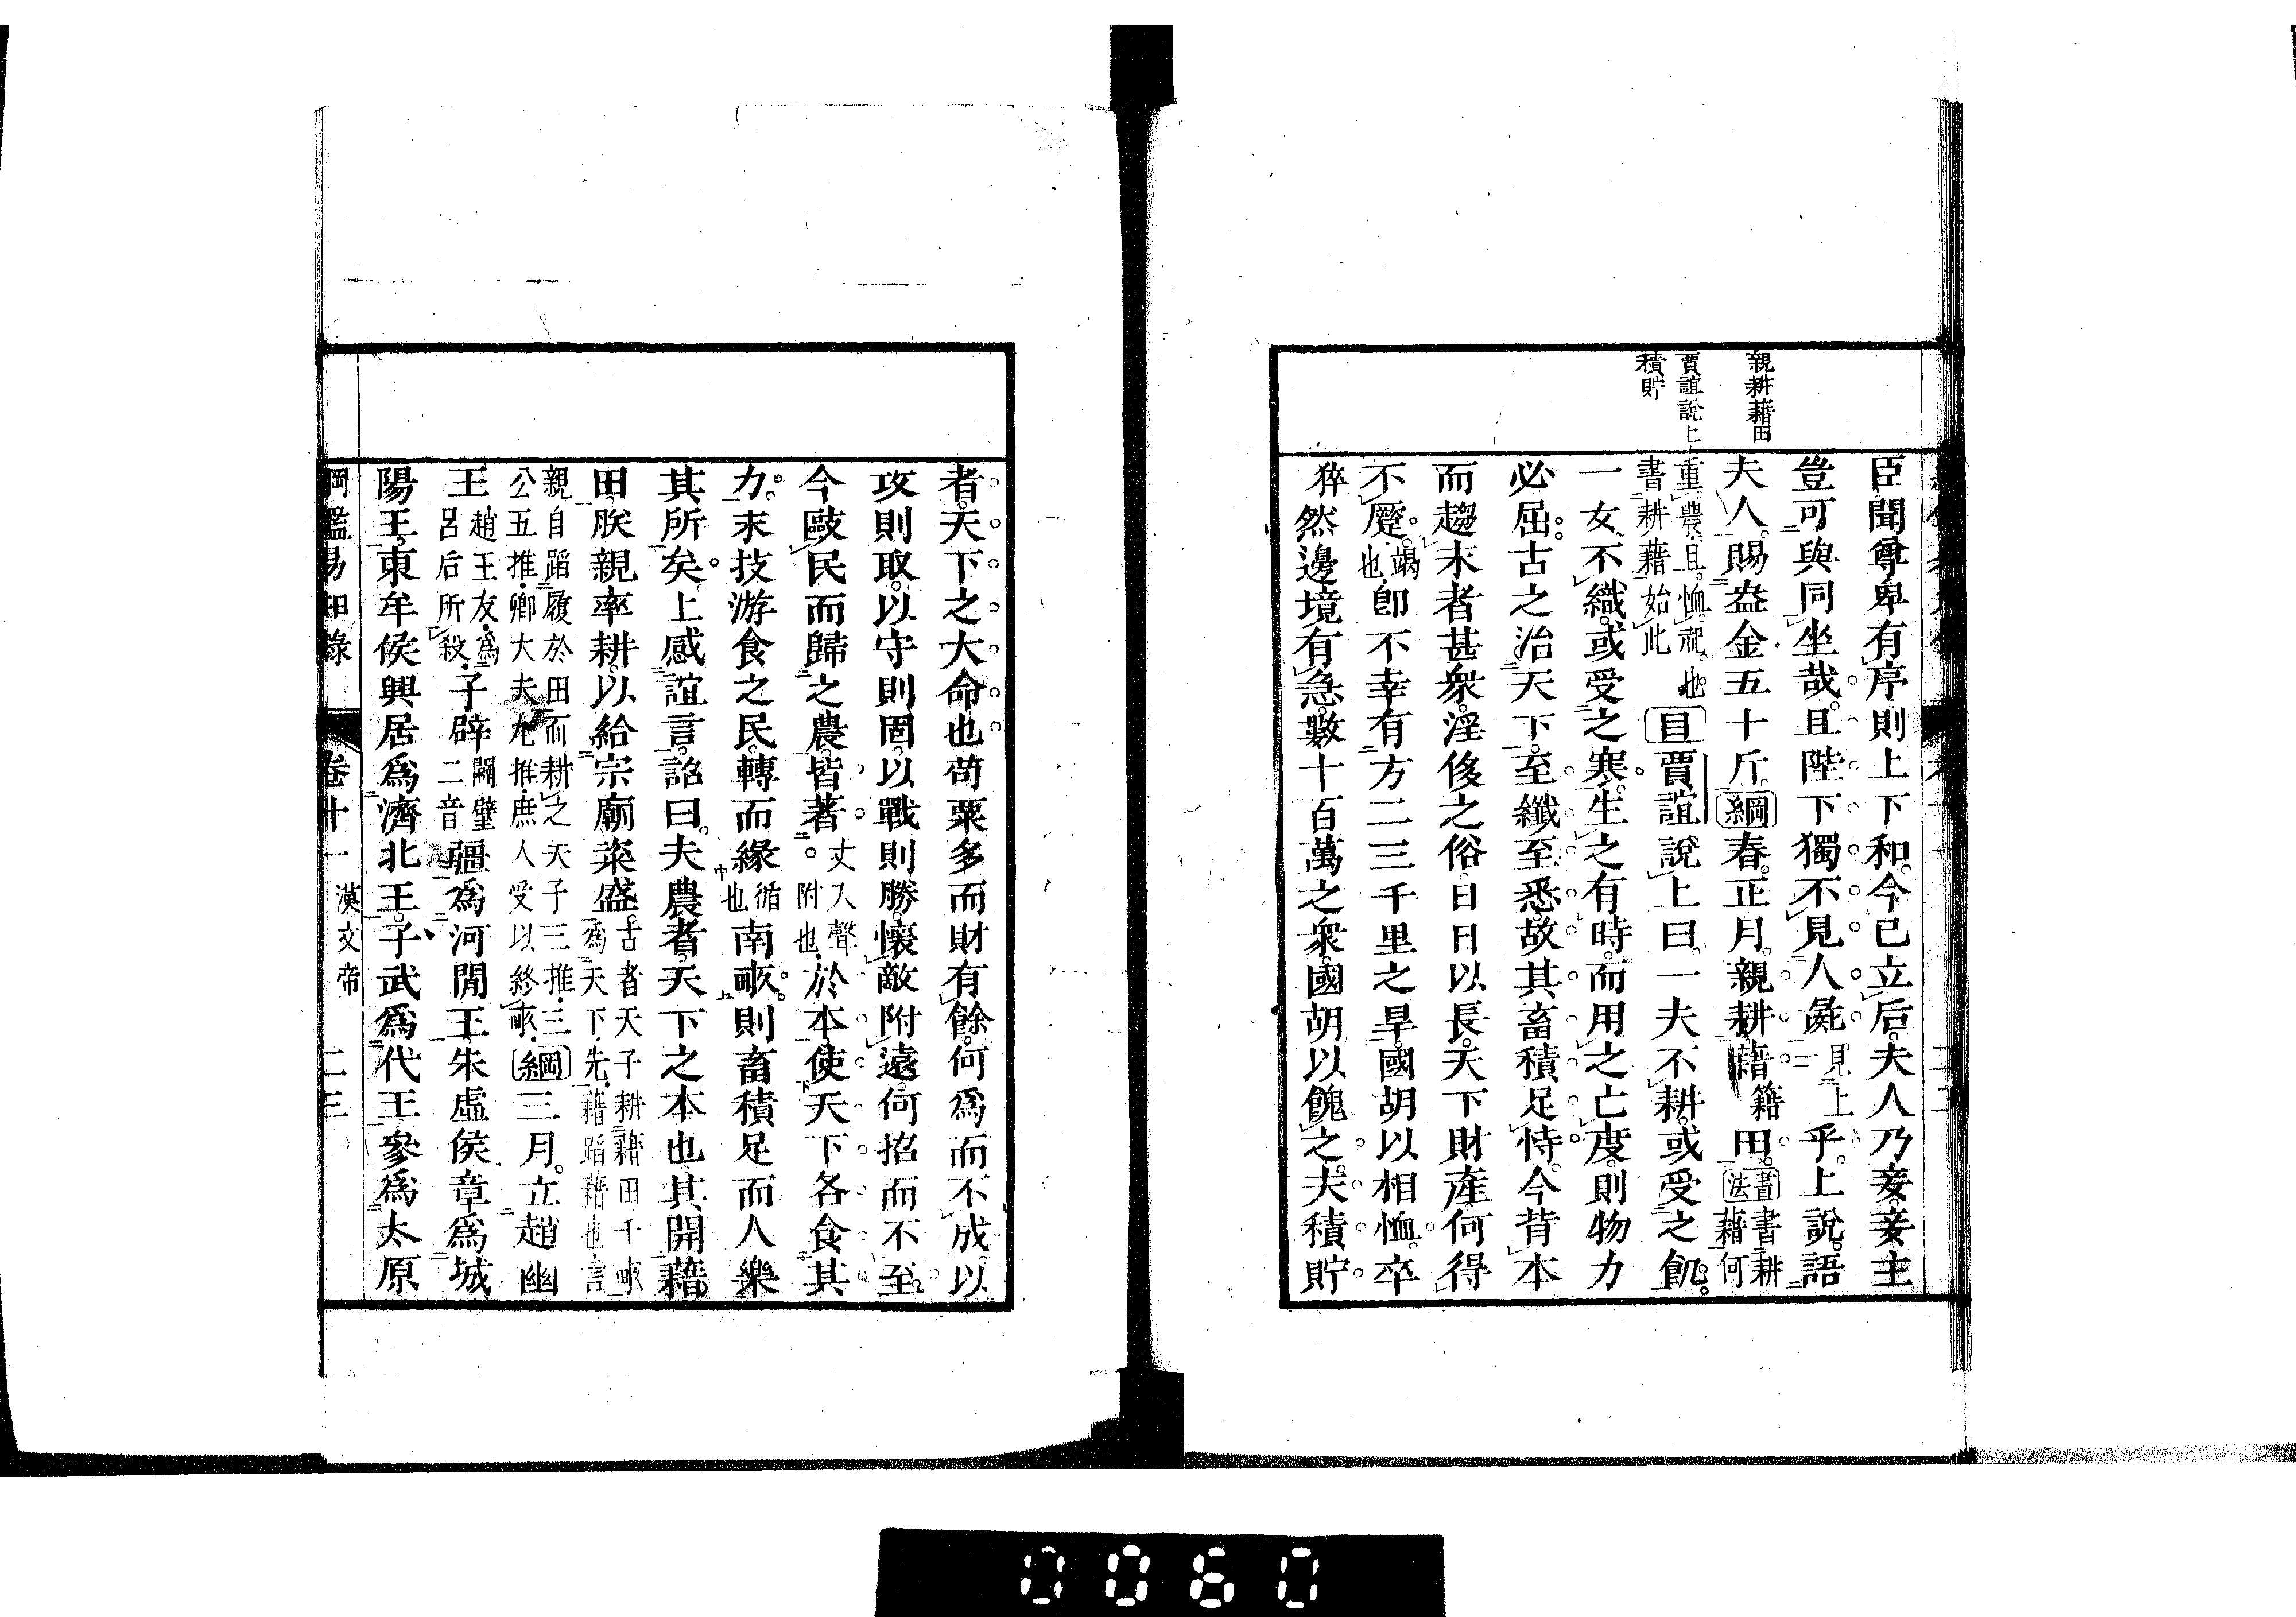 親耕藉田
賈誼說上
積貯
臣聞尊卑有序則上下和今已立后夫人乃妾妾主
豈可與同坐哉且陛下獨不見人彘見上乎上說語
夫人賜盎金五十斤綱春正月親耕藉籍田書法書耕藉何
重農且恤祀也書耕藉始此目賈誼說上曰一夫不耕或受之飢
一女不織或受之寒生之有時而用之亡度則物力
必屈古之治天下至纖至悉故其畜積足恃今背本
而趨末者甚衆淫侈之俗日日以長天下財產何得
不蹷竭也卽不幸有方二三千里之旱國胡以相恤卒
猝然邊境有急數十百萬之衆國胡以餽之夫積貯
者天下之大命也苟粟多而財有餘何爲而不成以
攻則取以守則固以戰則勝懷敵附遠何招而不至
今敺民而歸之農皆著丈入聲附也於本使天下各食其
力末技游食之民轉而緣循也南畝則畜積足而人樂
其所矣上感誼言詔曰夫農者天下之本也其開藉
田朕親率耕以給宗廟粢盛古者天子耕藉田千畝爲天下先藉蹈藉也言
親自蹈履於田而耕之天子三推三公五推卿大夫九推庶人受以終畝綱三月立趙幽
王趙王友爲呂后所殺子辟闢璧二音疆爲河閒王朱虛侯章爲城
陽王東牟侯興居爲濟北王子武爲代王參爲太原
綱鑑易知錄 卷十一 漢文帝 二三
0060